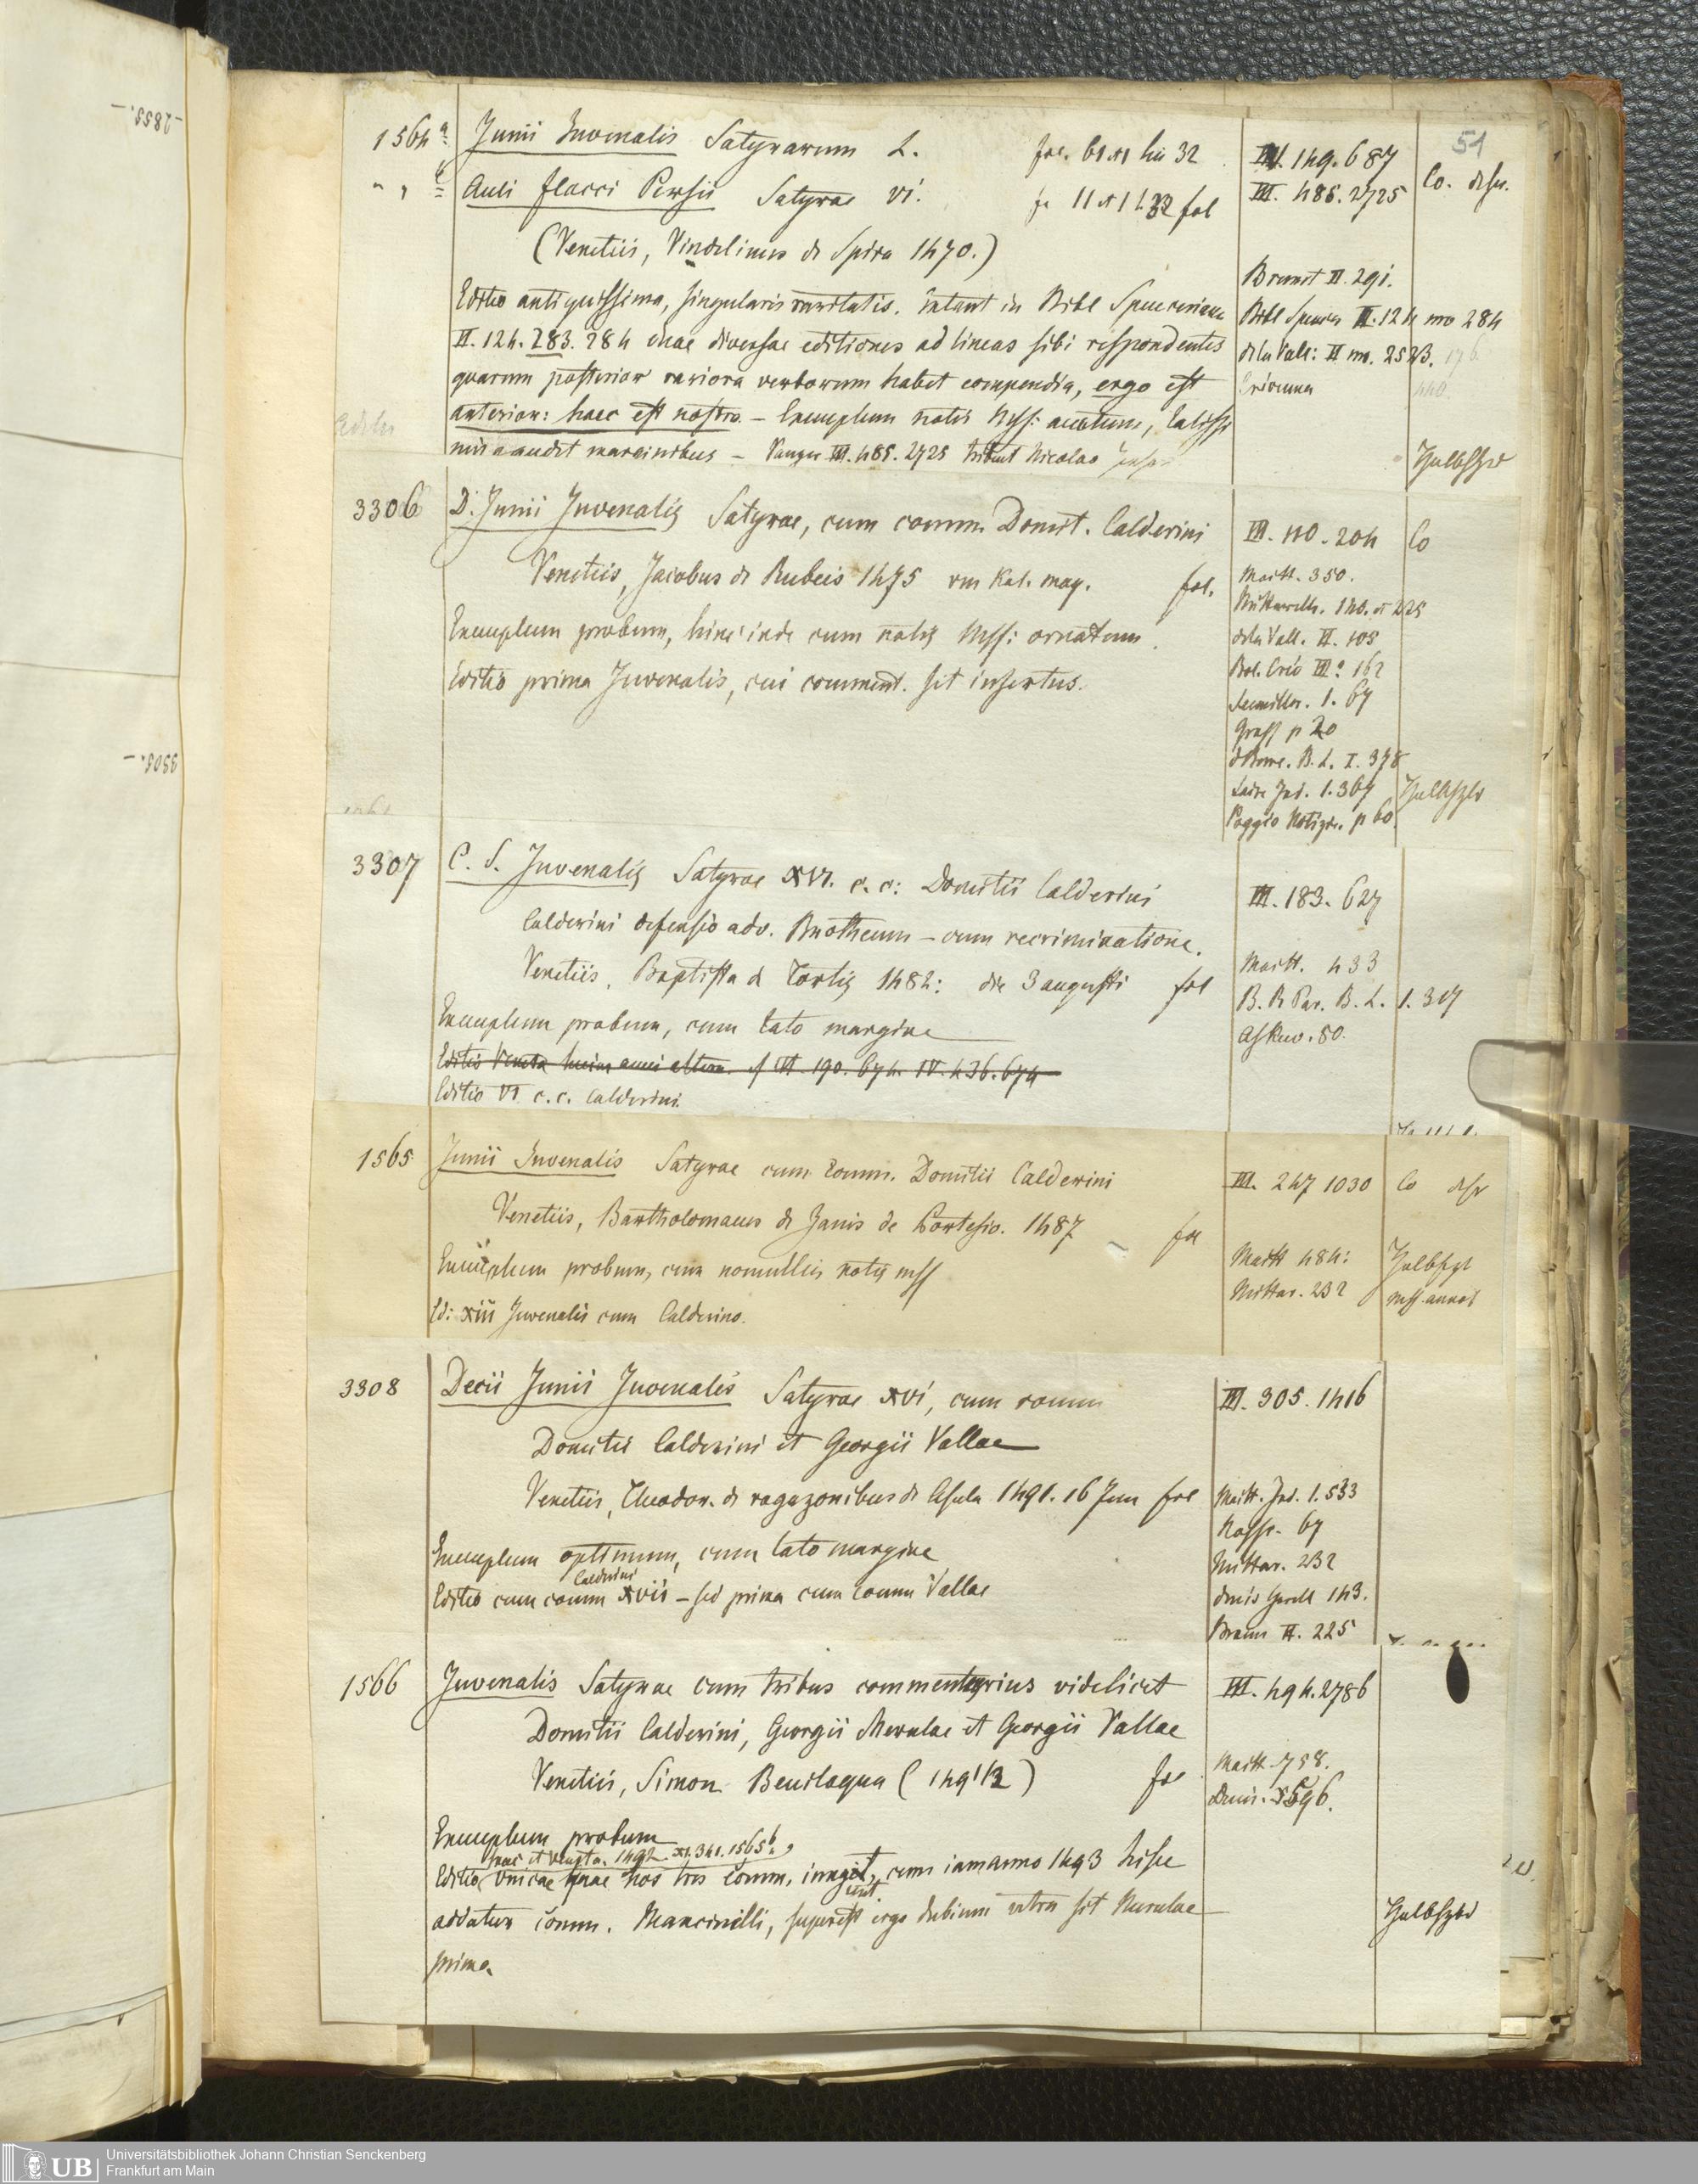 51
1564 a Junii Juvenalis Satyrarum L. fol. 61 lin 32 III. 149. 687 Co. desu.
" " b Auli flacci Persii Satyrae VI. 11 et 1 l. 32 fol III. 485. 2725
(Venetiis, Vindelinus de Spira 1470.)
Brunet II. 291.
Editio antiquissima, singularis raritatis. Extant in Bibl Spenceriana Bibl Spencer II. 124 no 284
II. 124. 283. 284 duae diversae editiones ad lineas sibi respondentes de la Vall: II no. 2523.
quarum posterior rariora verborum habet compendia, ergo est Crevenna
anterior: haec est nostra. — Exemplum notis Mss:
gaudet marginibus — Panzer III. 485. 2725 tribuit Nicolao Halbfrzbd
3306 D. Junii Juvenalis Satyrae, cum comm. Domit. Calderini III. 110. 204 Co
Venetiis, Jacobus de Rubeis 1475 VIII Kal. may. fol. Maitt. 350.
Mittarelli. 140. et 225
Exemplum probum, hinc inde cum notis Mss: ornatum. de la Vall. II. 105
Bol. Crev III. 162
Editio prima Juvenalis, cui comment. sit insertus.
Seemiller. 1. 67
p 20
B. L. I. 378
Laire Ind. 1. 367
p 60.
3307 C. S. Juvenalis Satyrae XVI. c. c: Domitii Calderini III. 183. 627
Calderini defensio adv. Brotheum — cum recriminatione. Maitt. 433
Venetiis, Baptista de Tortis 1482: die 3 augusti fol B. R Par. B. L. 1. 317
Exemplum probum, cum lato margine Askew. 50.
Editio Veneta huius anni altera. cf III. 190. 674. IV. 436. 674
Editio VI c. c. Calderini.
1565 Junii Juvenalis Satyrae cum Comm. Domitii Calderini III. 247 1030 Co
Venetiis, Bartholomaeus de Zanis de Portesio. 1487 fol
Maitt 484: Halbfrzt
Exemplum probum, cum nonnullis notis mss Mittar. 232 mss. annot
Ed: XIII Juvenalis cum Calderino.
3308 Decii Junii Juvenalis Satyrae XVI, cum comm III. 305. 1416
Domitii Calderini et Georgii Vallae
Venetiis, Theodor. de ragazonibus de Asula 1491. 16 Jun fol Maitt. Ind. 1. 533
67
Exemplum optimum, cum lato margine Mittar. 232
Calderini
Editio cum comm XVII — sed prima cum comm Vallae 143.
Braun II. 225
1566 Juvenalis Satyrae cum tribus commentariis videlicet III. 494. 2786
Domitii Calderini, Georgii Merulae et Georgii Vallae
Maitt. 758.
Venetiis, Simon Bevilaqua fol Denis. 596.
Exemplum probum
haec et Veneta. 1492. XI. 341. 1565 b
Editio unicae quae hos tres Comm. iungit, cum iam anno 1493 hisce
addatur Comm. Mancinelli, superest ergo dubium utra sit Merulae Halbfrzbd
prima.
Universitätsbibliothek Johann Christian Senckenberg
Frankfurt am Main
UB